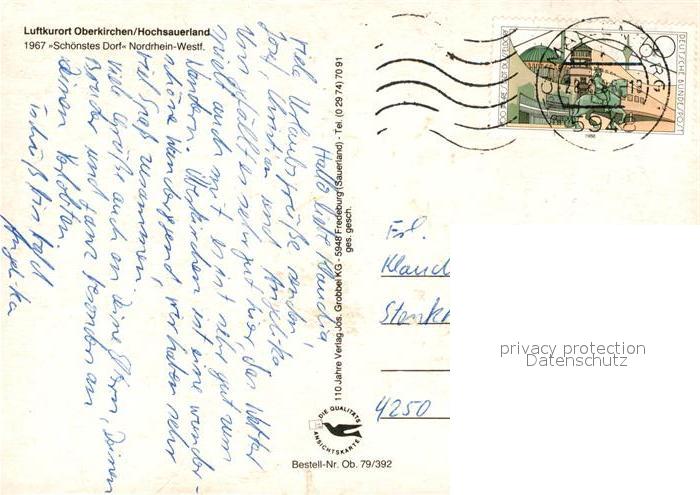 Luftkurort Oberkirchen/Hochsauerland
1967 »Schönstes Dorf« Nordrhein-Westf.
Hallo liebe Klaudia,
viele Urlaubsgrüße senden
Josi, Christian und Angelika
Uns gefällt es sehr gut hier, das Wetter
spielt auch mit, es ist sehr gut zum
Wandern. Oberkirchen ist eine wunder-
schöne Wandergegend, wir haben sehr
viel Spaß zusammen.
viele Grüße auch an Deine Eltern, Deinen
Bruder und ganz besonders an
Deinen Verlobten.
Tschüß bis bald
Angelika
110 Jahre Verlag Jos. Grobbel KG - 5948 Fredeburg (Sauerland) - Tel. (0 29 74) 70 91
ges. gesch.
DIE QUALITÄTS
ANSICHTSKARTE
Bestell-Nr. Ob. 79/392
80
DEUTSCHE BUNDESPOST
1988
5948
Frl.
Klaud
4250
privacy protection
Datenschutz